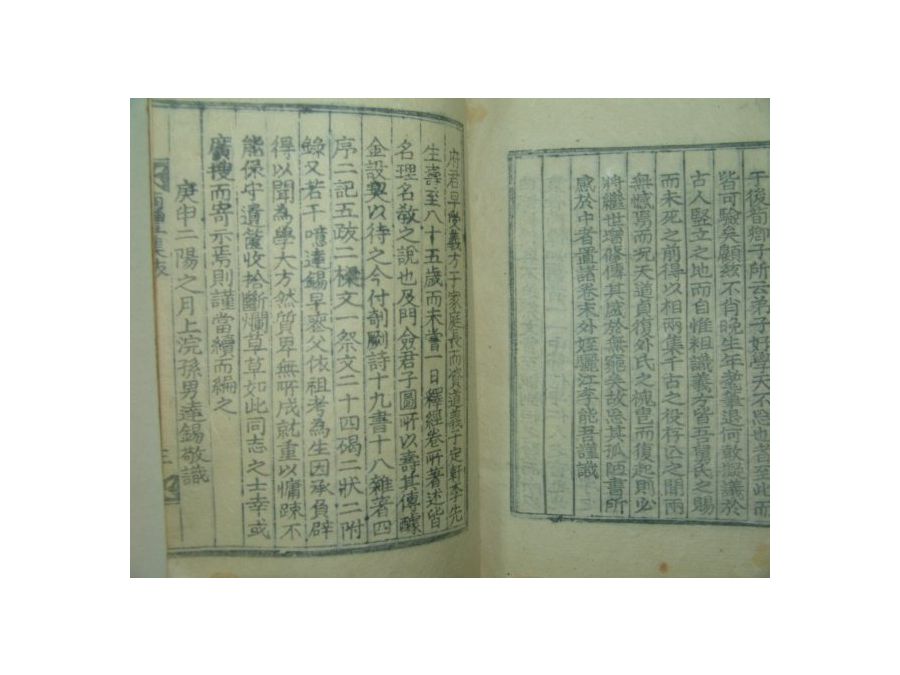 于後荀鄉子所云弟子好學天不忘也者至此而
皆可驗矣顧玆不肖晚生年耄輩退何敢擬議於
古人堅立之地而自惟粗識義方皆吾舅氏之賜
而未死之前得以相兩集千古之役存亡之間兩
無憾焉而況天道貞復外氏之槐冑而復起則必
將繼世增修傳其盛於無窮矣故忘其孤陋書所
感於中者置諸卷末外姪驪江李能吾謹識
府君早學義方于家庭長而資道義于定軒李先
生壽至八十五歲而未嘗一日釋經卷所著述皆
名理名敬之說也及門僉君子圖所以壽其傳醵
金設契以待之今付剞劂詩十九書十八雜著四
序二記五跋二樑文一祭文二十四碣二狀二附
錄又若干噫達錫早喪父依祖考為生因承負辟
得以聞為學大方然質卑無所成就重以慵踈不
能保守遺篋收拾斷爛草草如此同志之士幸或
廣搜而寄示焉則謹當續而編之
庚申二陽之月上浣孫男達錫敬識
三